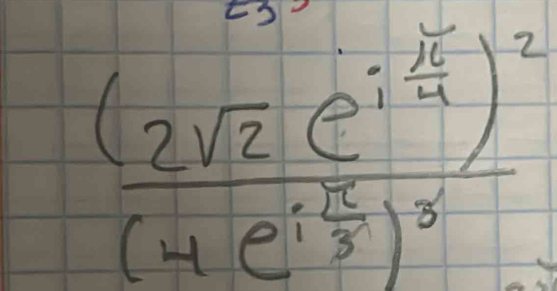 (2√2 e^{i π/4})^2
(4 e^{i π/3})^3